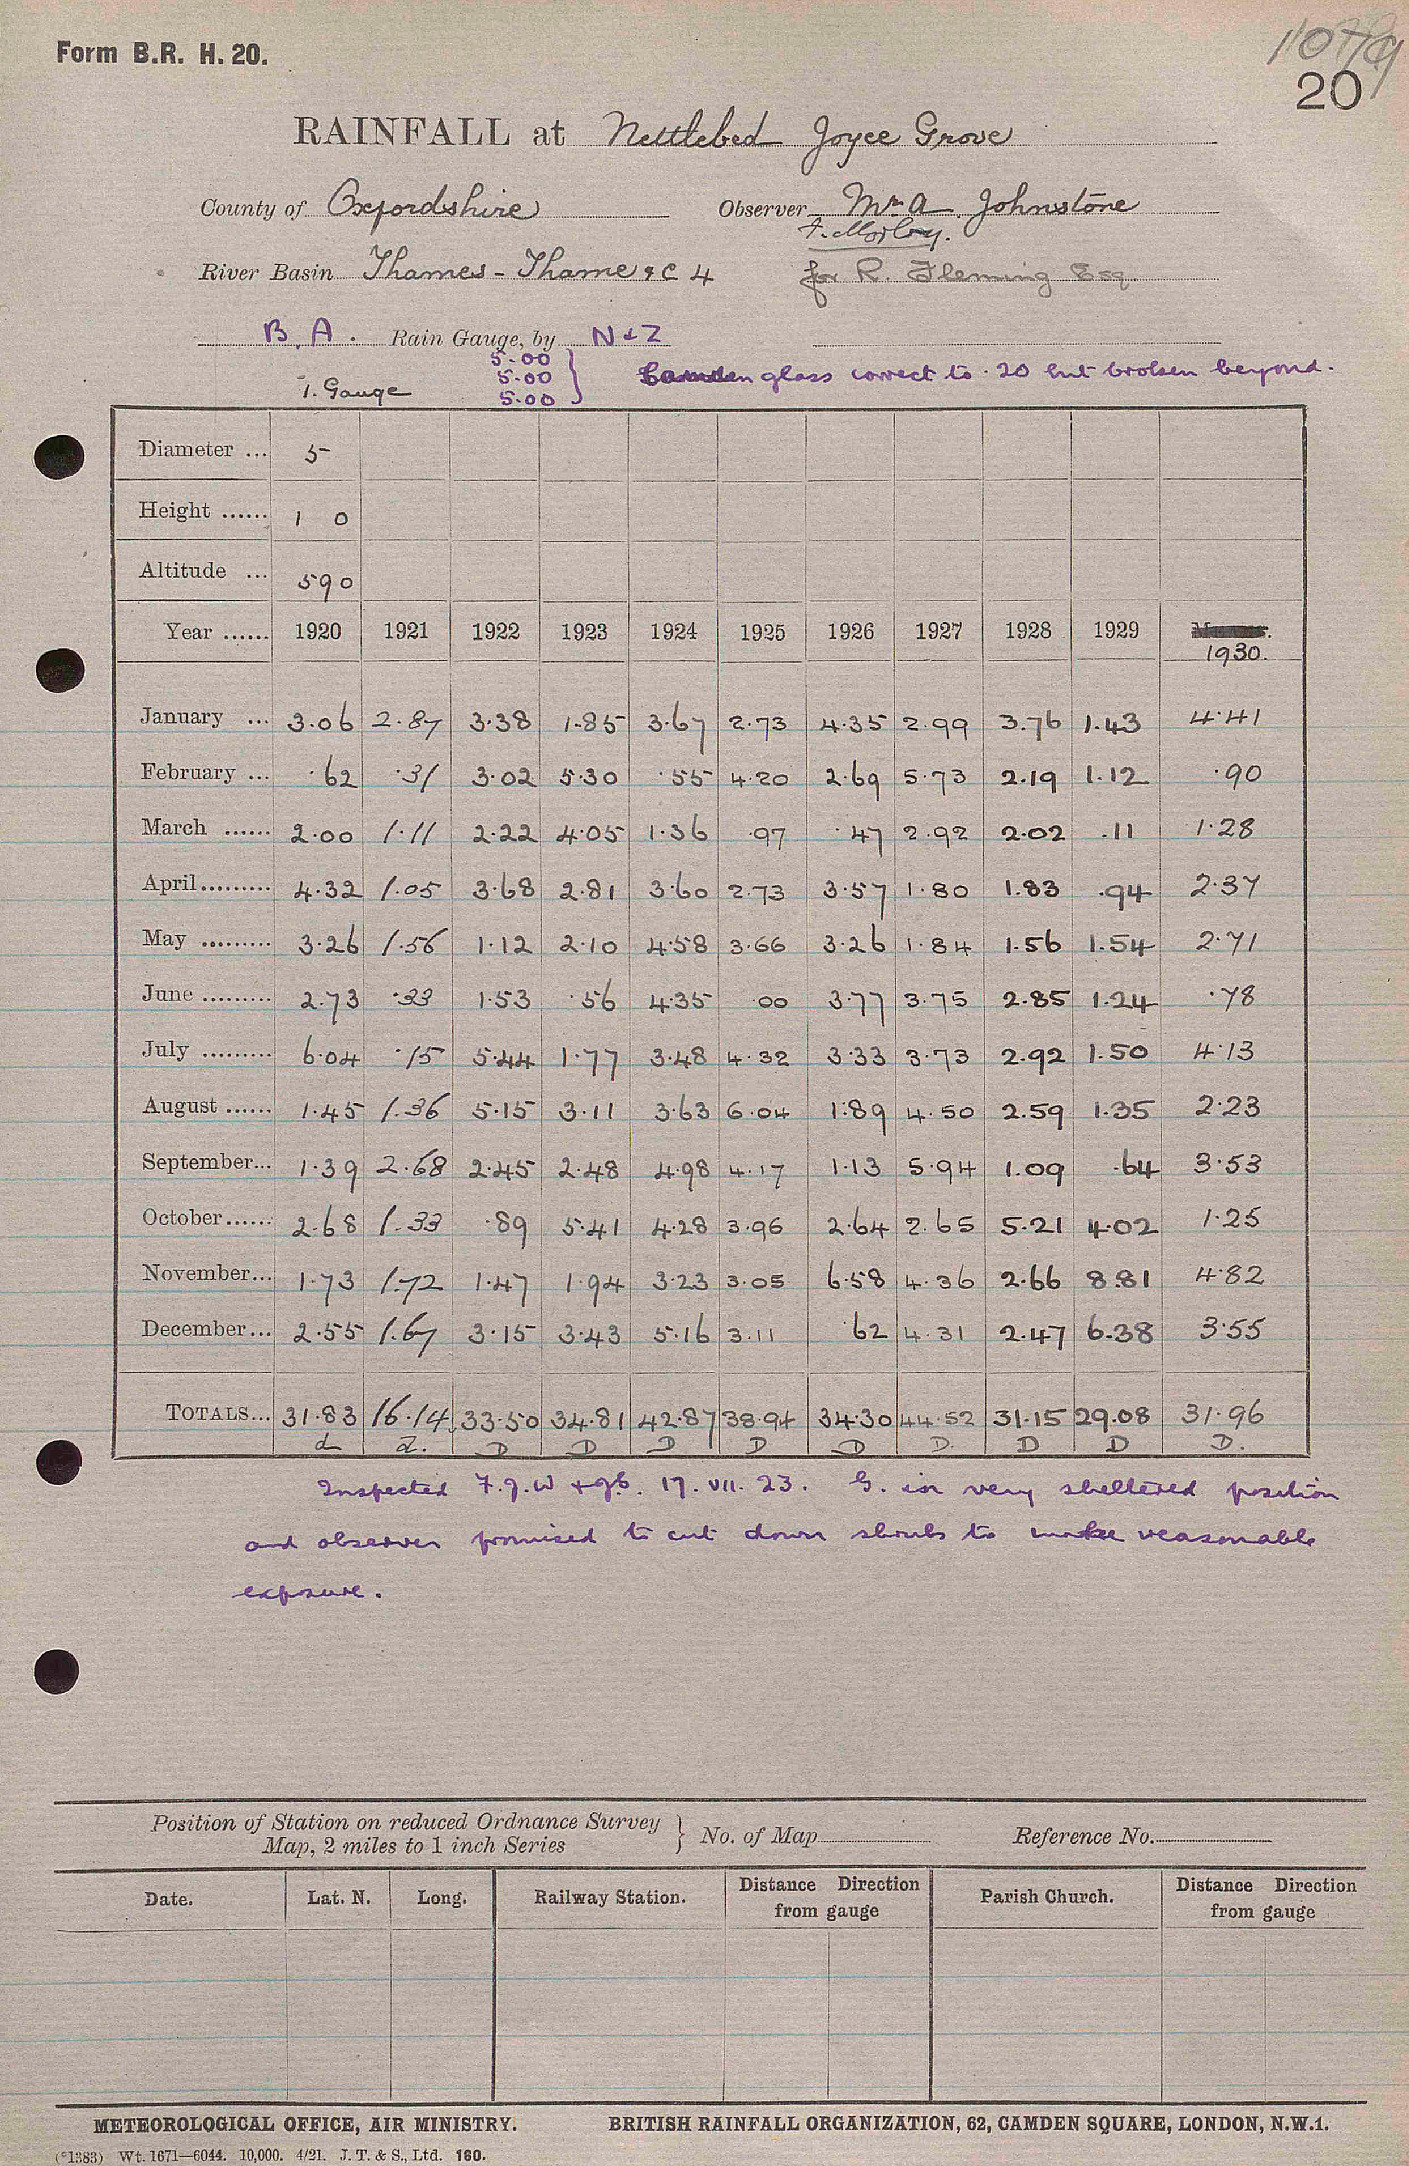 Form B.R. H. 20.
20
RAINFALL at Nettlebed Joyce Grove
County of Oxfordshire Observer Mr A Johnstone
F. Morley.
River Basin Thames - Thame &c 4 for R. Fleming Esq.
B. A. Rain Gauge, by N & Z
5.00
5.00
5.00
T. Gauge
glass correct to .20 but broken beyond.
Diameter ... 5
Height ...... 1 0
Altitude ... 590
Year ...... 1920 1921 1922 1923 1924 1925 1926 1927 1928 1929 1930.
January ... 3.06 2.87 3.38 1.85 3.67 2.73 4.35 2.99 3.76 1.43 4.41
February ... .62 .31 3.02 5.30 .55 4.20 2.69 5.73 2.19 1.12 .90
March ...... 2.00 1.11 2.22 4.05 1.36 .97 .47 2.92 2.02 .11 1.28
April......... 4.32 1.05 3.68 2.81 3.60 2.73 3.57 1.80 1.83 .94 2.37
May ......... 3.26 1.56 1.12 2.10 4.58 3.66 3.26 1.84 1.56 1.54 2.71
June ......... 2.73 .33 1.53 .56 4.35 .00 3.77 3.75 2.85 1.24 .78
July ......... 6.04 .15 5.44 1.77 3.48 4.32 3.33 3.73 2.92 1.50 4.13
August ...... 1.45 1.36 5.15 3.11 3.63 6.04 1.89 4.50 2.59 1.35 2.23
September... 1.39 2.68 2.45 2.48 4.98 4.17 1.13 5.94 1.09 .64 3.53
October...... 2.68 1.33 .89 5.41 4.28 3.96 2.64 2.65 5.21 4.02 1.25
November... 1.73 1.72 1.47 1.94 3.23 3.05 6.58 4.36 2.66 8.81 4.82
December... 2.55 1.67 3.15 3.43 5.16 3.11 .62 4.31 2.47 6.38 3.55
TOTALS... 31.83 16.14 33.50 34.81 42.87 38.94 34.30 44.52 31.15 29.08 31.96
d d. D D D D D D. D D D.
Inspected 17.VII.23. G. in very sheltered position
and observer promised to cut down shrubs to make reasonable
exposure.
Position of Station on reduced Ordnance Survey
Map, 2 miles to 1 inch Series
No. of Map Reference No.
Date. Lat. N. Long. Railway Station. Distance Direction from gauge Parish Church. Distance Direction from gauge
METEOROLOGICAL OFFICE, AIR MINISTRY. BRITISH RAINFALL ORGANIZATION, 62, CAMDEN SQUARE, LONDON, N.W.1.
(*1383) Wt. 1671—6044. 10,000. 4/21. J. T. & S., Ltd. 160.